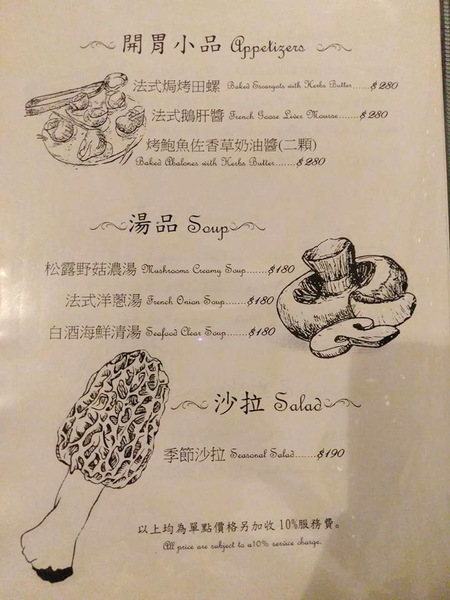 開胃小品 Appetizers
法式焗烤田螺 Baked Escargots with Herbs Butter....$280
法式鵝肝醬 French Goose Liver Mousse......$280
烤鮑魚佐香草奶油醬(二顆)
Baked Abalones with Herbs Butter.......$280
湯品 Soup
松露野菇濃湯 Mushrooms Creamy Soup........$180
法式洋蔥湯 French Onion Soup.......$180
白酒海鮮清湯 Seafood Clear Soup.......$180
沙拉 Salad
季節沙拉 Seasonal Salad.......$190
以上均為單點價格另加收10%服務費。
All price are subject to a10% service charge.